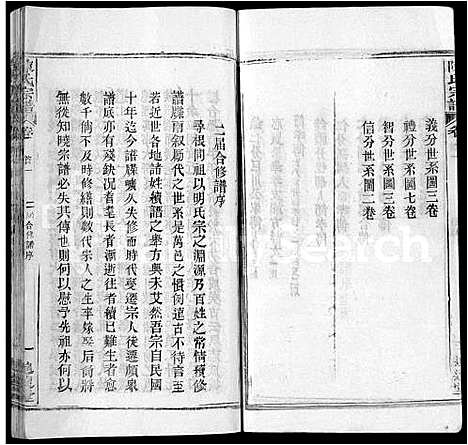 陳氏宗譜
義分世系圖三卷
禮分世系圖七卷
智分世系圖三卷
信分世系圖二卷
二届合修譜序
尋根問祖以明氏宗之淵源乃百姓之常情積修
譜牒而叙屬代之世系是萬邑之慣例遠古不待言至
若近世各地諸姓積譜之舉方興未艾然吾宗自民國
十年迄今譜牒久失修而時代變遷宗人後遷頗衆
數千倘不及時修繕則數代宗人之生卒嫁娶后裔將
譜底亦有殘缺况耆耄長者漸逝往者積已難生者愈
無從知曉宗譜必失其傳也則何以慰乎先祖亦何以
陳氏宗譜
卷首
合修譜序